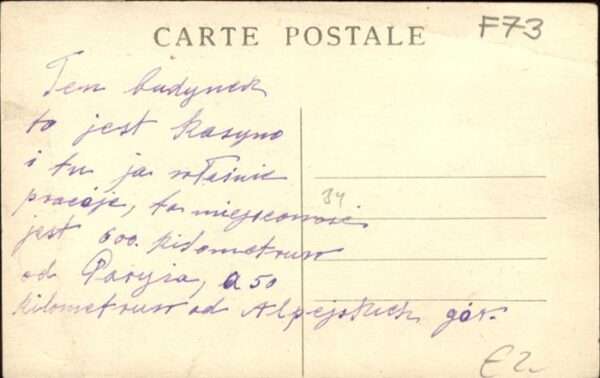 CARTE POSTALE
F73
Ten budynek
to jest Kasyno
i tu ja właśnie
pracuje, ta miejscowość
34
jest 600. kidometruw
od Paryża, a 50
kilometruw od Alpejskich gór.
€2-